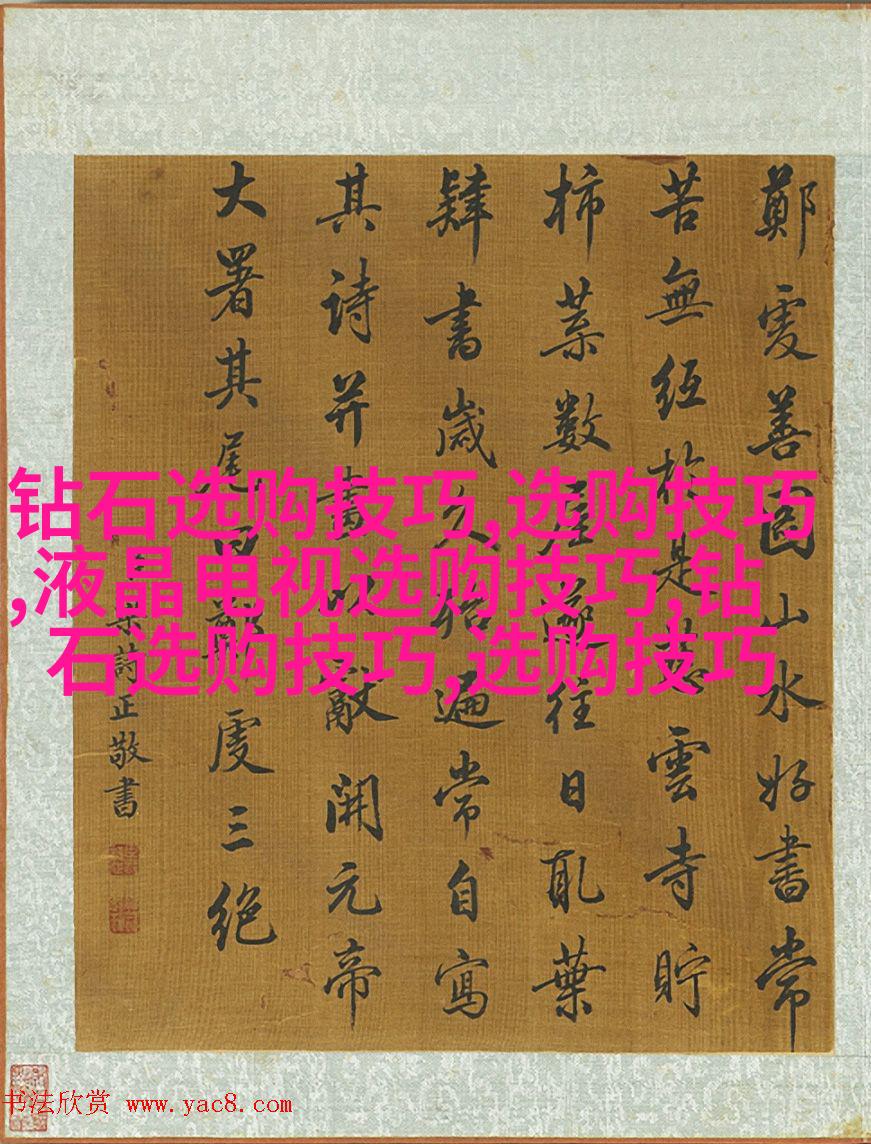 鄭虔善圖山水好書常
苦無紙於是慈雲寺貯
柿葉數屋遂往日取葉
肄書歲久殆遍常自寫
其詩并畫以獻開元帝
大署其尾曰鄭虔三絕
梁詩正敬書
钻石选购技巧,选购技巧
,液晶电视选购技巧,钻
石选购技巧,选购技巧
书法欣赏 www.yac8.com